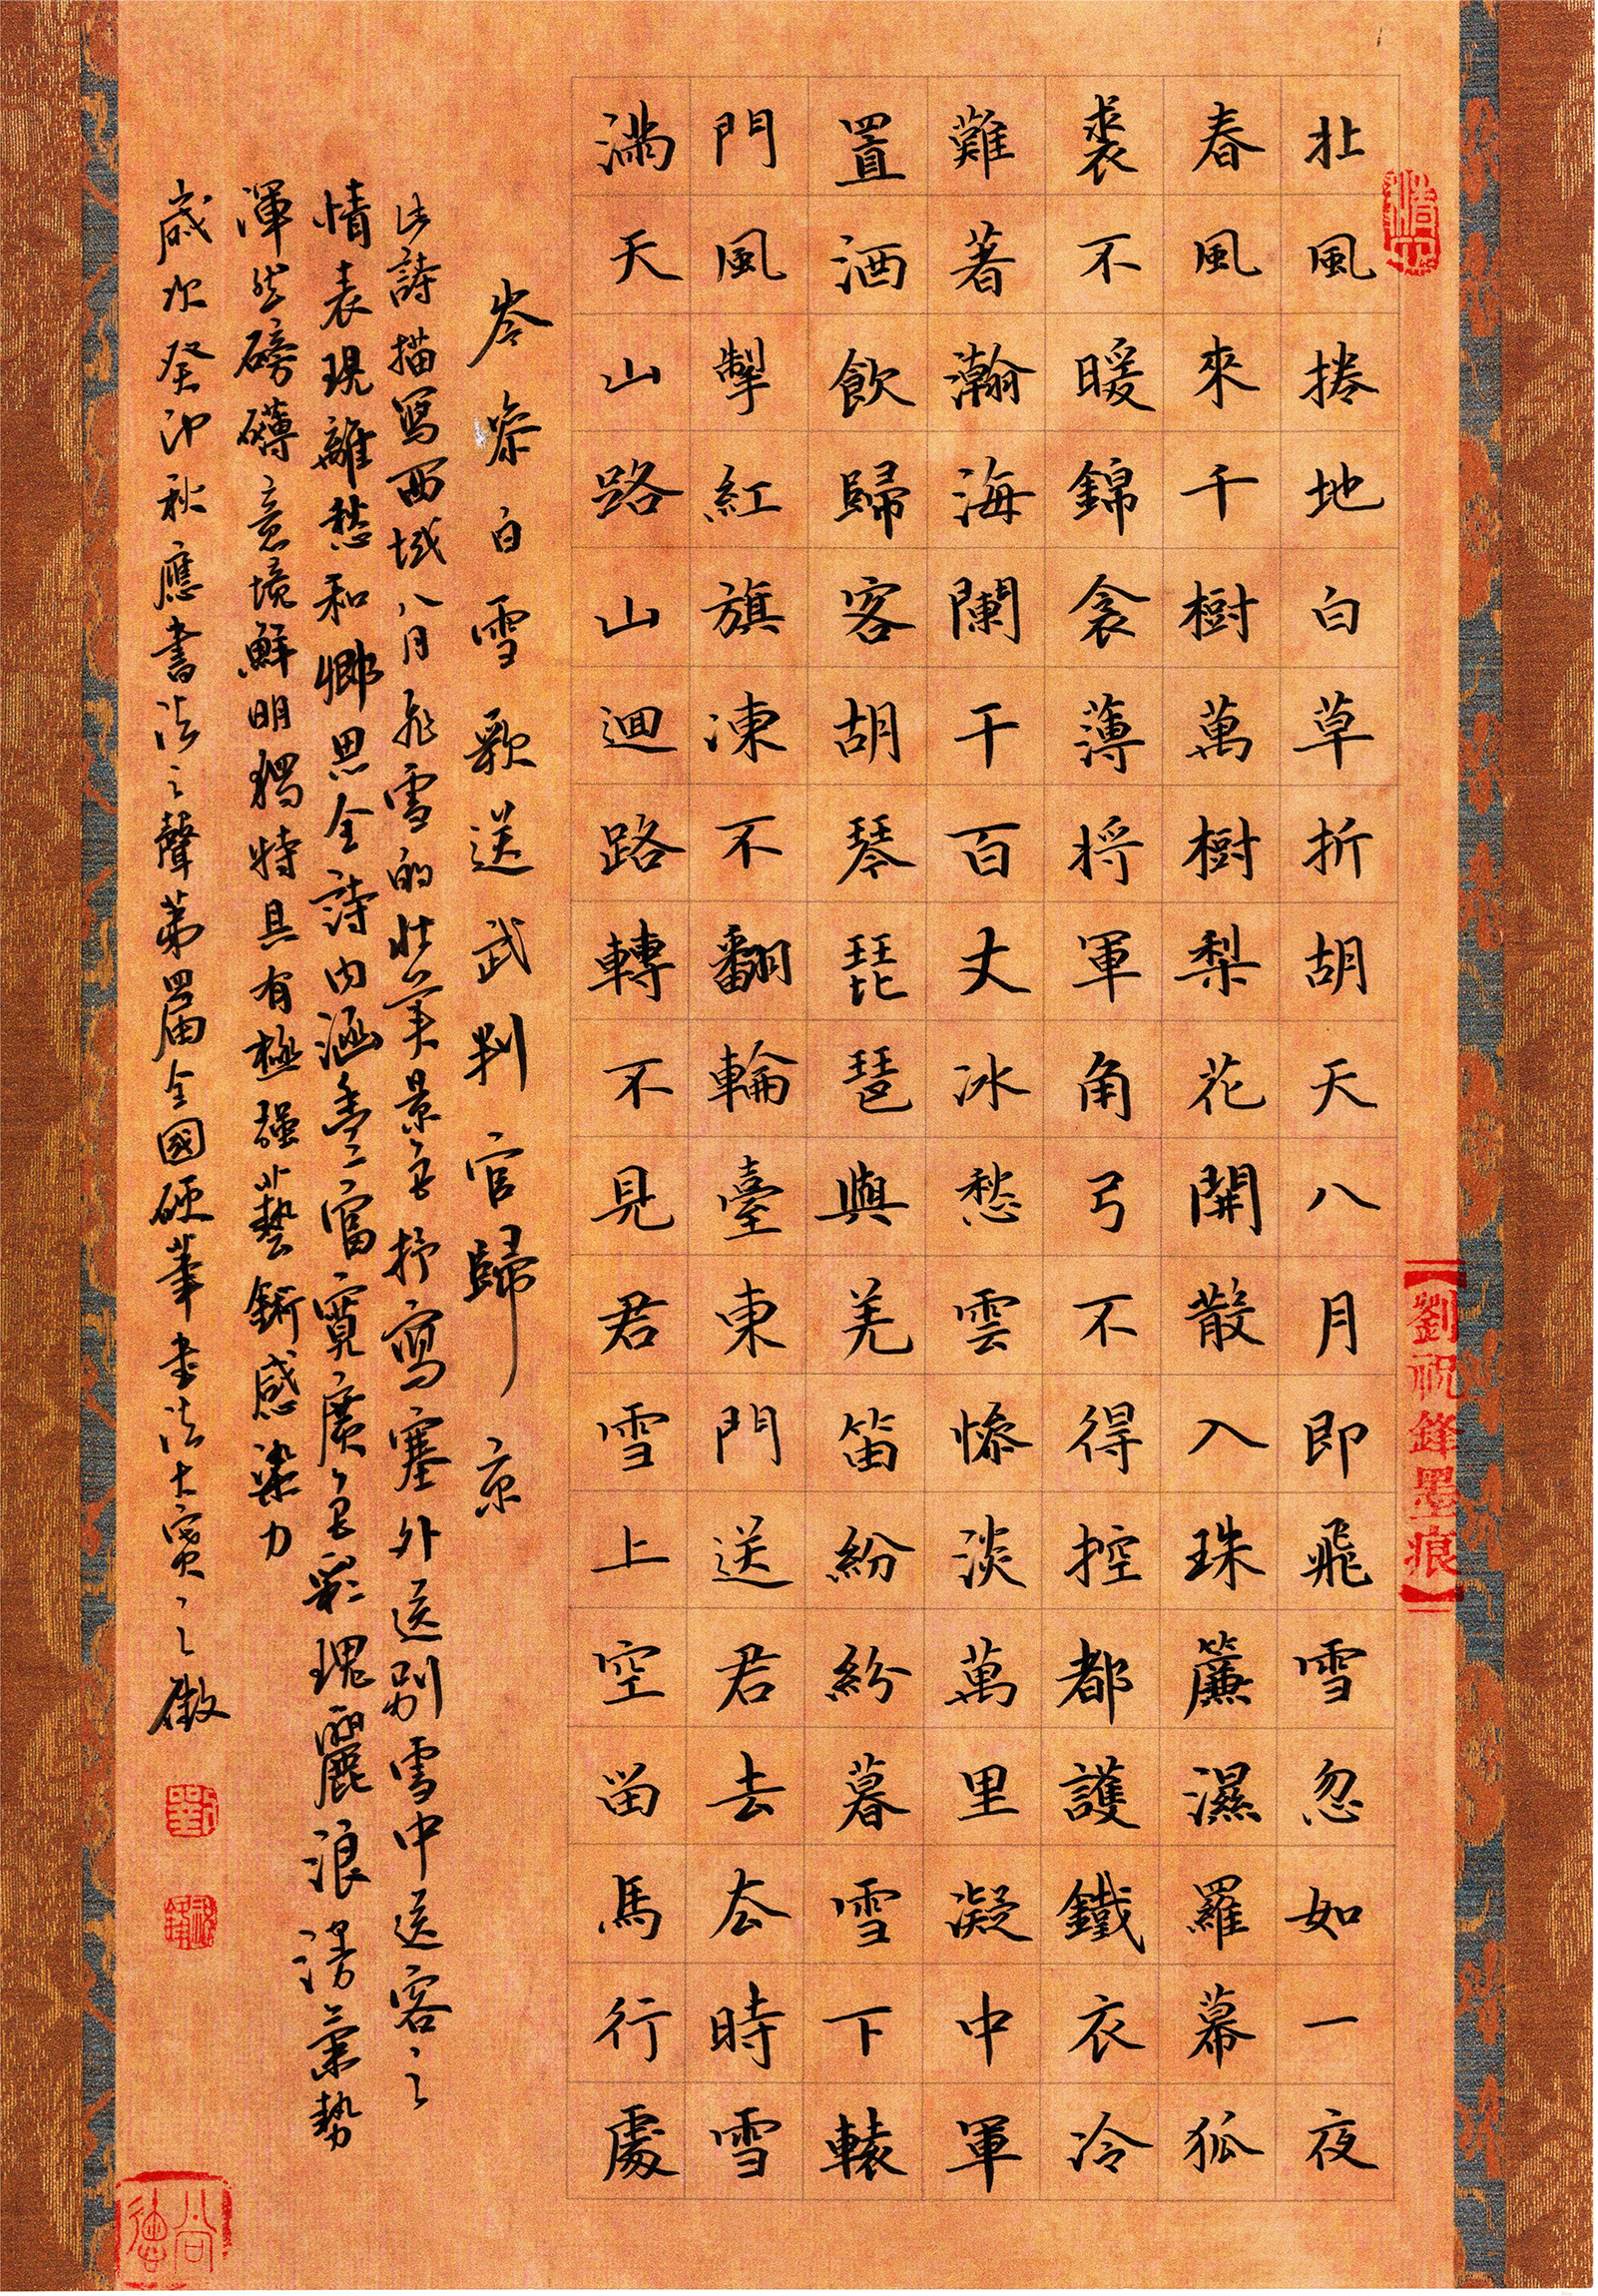 北風捲地白草折胡天八月即飛雪忽如一夜
春風來千樹萬樹梨花開散入珠簾濕羅幕狐
裘不暖錦衾薄將軍角弓不得控都護鐵衣冷
難著瀚海闌干百丈冰愁雲慘淡萬里凝中軍
置酒飲歸客胡琴琵琶與羌笛紛紛暮雪下轅
門風掣紅旗凍不翻輪臺東門送君去去時雪
滿天山路山迴路轉不見君雪上空留馬行處
岑參白雪歌送武判官歸京
此詩描寫西域八月飛雪的壯美景色抒寫塞外送別雪中送客之
情表現離愁和鄉思全詩內涵豐富寬廣色彩瑰麗浪漫氣勢
渾然磅礴意境鮮明獨特具有極強藝術感染力
歲次癸卯秋應書法之聲第四屆全國硬筆書法大賽之徵
劉祝鋒墨痕